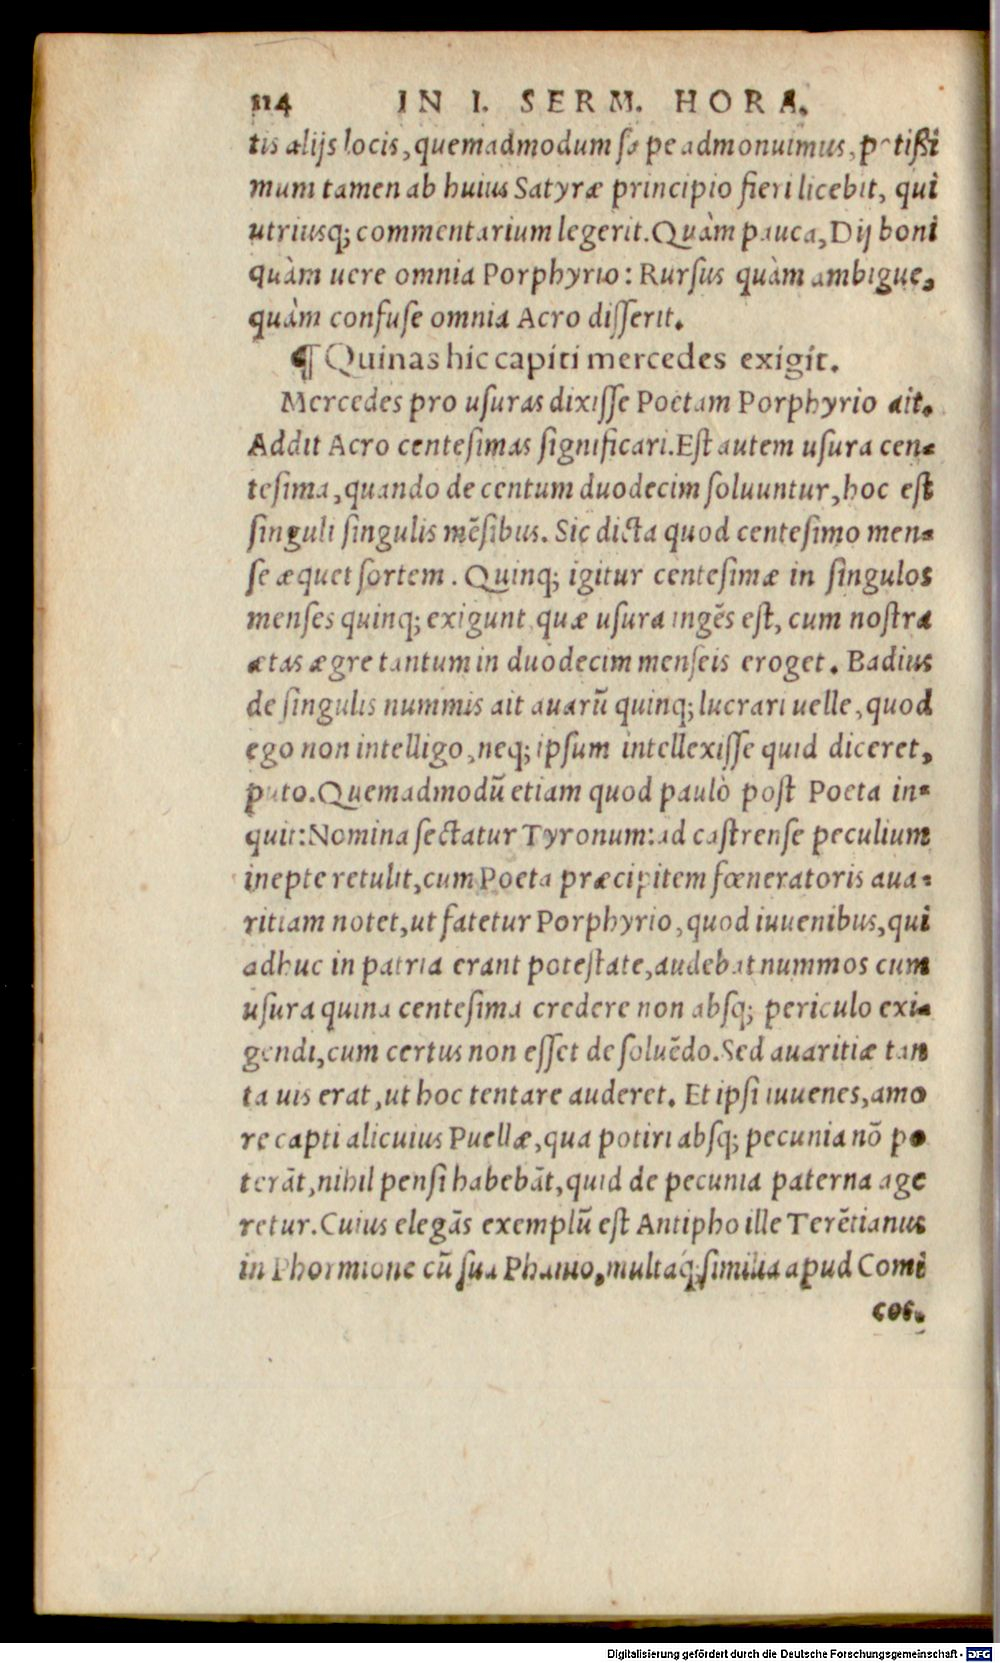 114 IN I. SERM. HORA.
tis alijs locis, quemadmodum sæpe admonuimus, potißi
mum tamen ab huius Satyræ principio fieri licebit, qui
utriusq; commentarium legerit. Quàm pauca, Dij boni
quàm uere omnia Porphyrio: Rursus quàm ambigue,
quàm confuse omnia Acro disserit.
¶ Quinas hic capiti mercedes exigit.
Mercedes pro usuras dixisse Poëtam Porphyrio ait.
Addit Acro centesimas significari. Est autem usura cen-
tesima, quando de centum duodecim soluuntur, hoc est
singuli singulis mēsibus. Sic dicta quod centesimo men-
se æquet sortem. Quinq; igitur centesimæ in singulos
menses quinq; exigunt, quæ usura ingēs est, cum nostra
ætas ægre tantum in duodecim menseis eroget. Badius
de singulis nummis ait auarū quinq; lucrari uelle, quod
ego non intelligo, neq; ipsum intellexisse quid diceret,
puto. Quemadmodū etiam quod paulò post Poeta in-
quit: Nomina sectatur Tyronum: ad castrense peculium
inepte retulit, cum Poeta præcipitem fœneratoris aua-
ritiam notet, ut fatetur Porphyrio, quod iuuenibus, qui
adhuc in patria erant potestate, audebat nummos cum
usura quina centesima credere non absq; periculo exi-
gendi, cum certus non esset de soluēdo. Sed auaritiæ tan
ta uis erat, ut hoc tentare auderet. Et ipsi iuuenes, amo
re capti alicuius Puellæ, qua potiri absq; pecunia nō po
terāt, nihil pensi habebāt, quid de pecunia paterna age
retur. Cuius elegās exemplū est Antipho ille Terētianus
in Phormione cū sua Phanio, multaq́; similia apud Comi
cos.
Digitalisierung gefördert durch die Deutsche Forschungsgemeinschaft - DFG